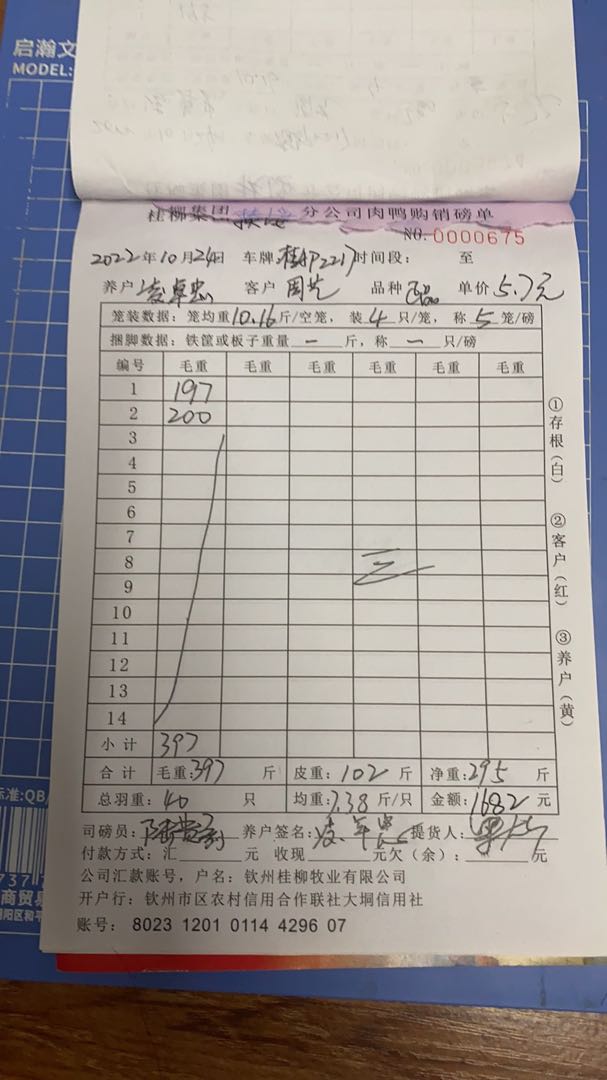 启瀚文
MODEL:
桂柳集团 分公司肉鸭购销磅单
NO. 0000675
2022年10月24日 车牌 桂AP2217 时间段: 至
养户 凌卓忠 客户 周艺 品种 单价 5.7元
笼装数据: 笼均重10.16斤/空笼, 装4只/笼, 称5笼/磅
捆脚数据: 铁筐或板子重量 — 斤, 称 — 只/磅
编号 毛重 毛重 毛重 毛重 毛重 毛重
1 197
2 200
3
4
5
6
7
8
9
10
11
12
13
14
小计 397
合计 毛重:397 斤 皮重:102 斤 净重:295 斤
总羽重: 40 只 均重:7.38斤/只 金额:1682元
①存根(白)
②客户(红)
③养户(黄)
司磅员: 养户签名: 提货人:
付款方式: 汇 元 收现 元欠(余): 元
公司汇款账号, 户名: 钦州桂柳牧业有限公司
开户行: 钦州市区农村信用合作联社大垌信用社
账号: 8023 1201 0114 4296 07
标准:QB/
商贸
阳区和平